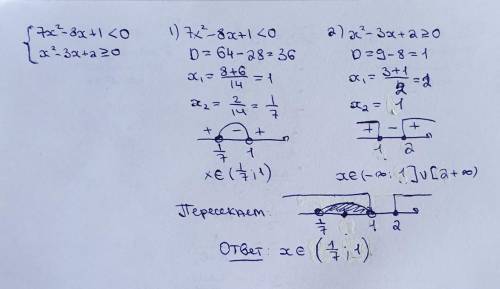 {7x²-8x+1<0
x²-3x+2≥0
1) 7x²-8x+1<0
D=64-28=36
x₁=8+6/14=1
x₂=2/14=1/7
+ - +
1/7 1
x∈(1/7;1)
2) x²-3x+2≥0
D=9-8=1
x₁=3+1/2=2
x₂=1
+ - +
1 2
x∈(-∞;1]∪[2+∞)
Пересекает:
1/7 1 2
Ответ: x∈(1/7;1)